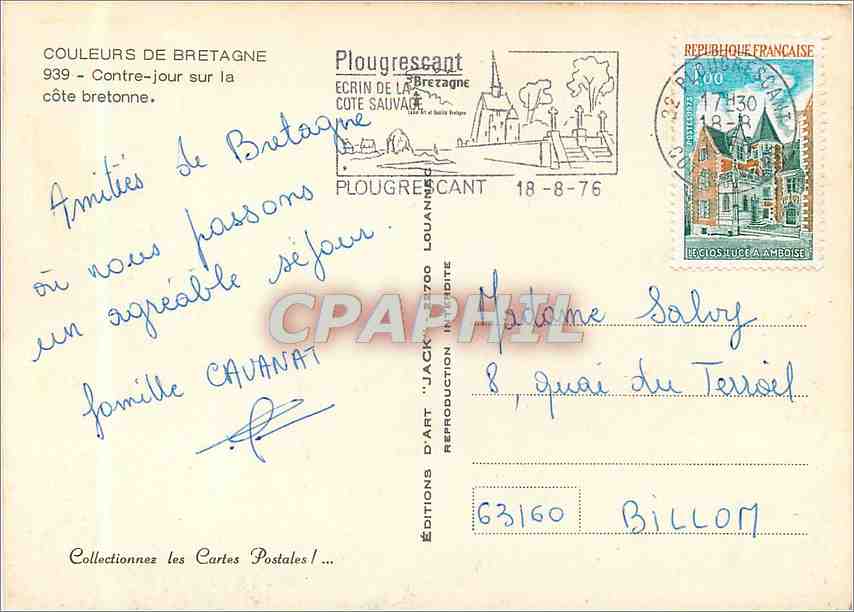 COULEURS DE BRETAGNE
939 - Contre-jour sur la
côte bretonne.
Plougrescant
ECRIN DE LA
COTE SAUVAGE
Bretagne
PLOUGRESCANT 18-8-76
REPUBLIQUE FRANÇAISE
1,00
POSTES 1973
LE CLOS LUCE A AMBOISE
22 PLOUGRESCANT
17H30
18-8
Amitiés de Bretagne
où nous passons
un agréable séjour.
famille CAVANAT
CPAPHIL
ÉDITIONS D'ART "JACK" - 22700 LOUANNEC
REPRODUCTION INTERDITE
Madame Salvy
8, quai du Terrail
63160 BILLOM
Collectionnez les Cartes Postales !...